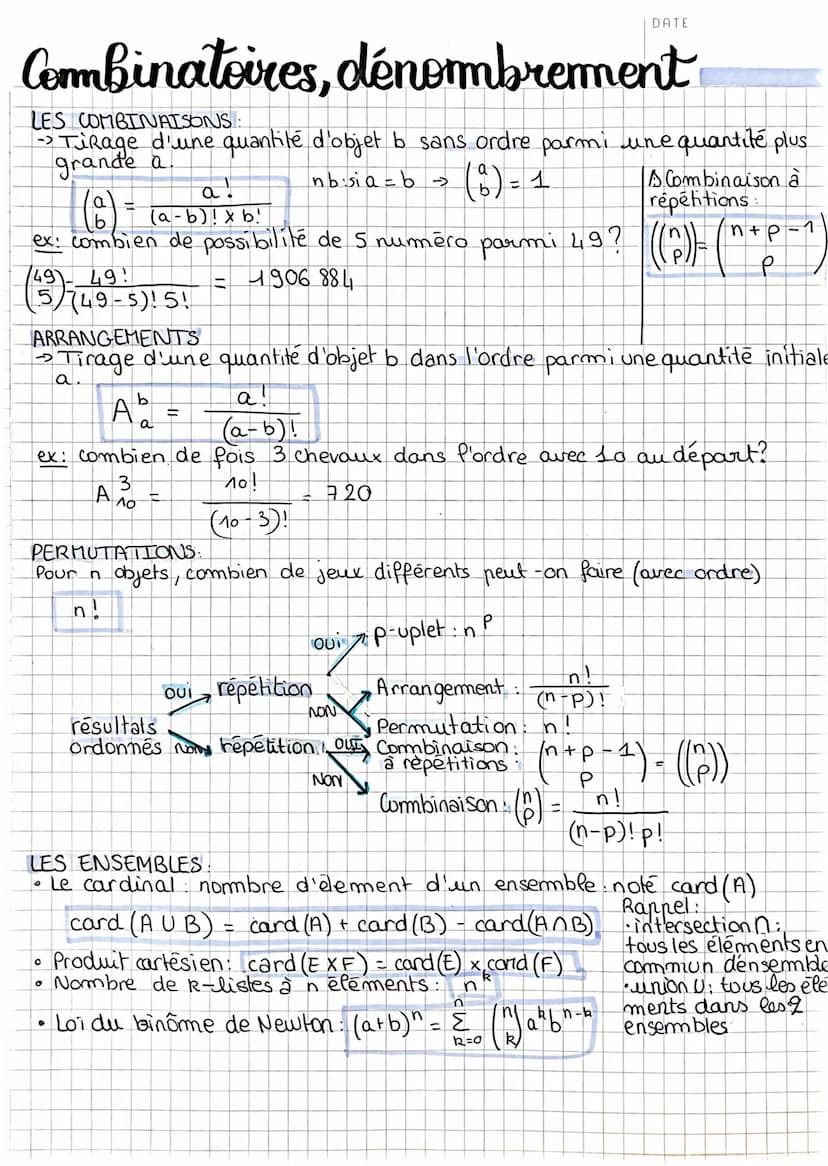 DATE
Combinatoires, dénombrement
LES COMBINAISONS:
-> Tirage d'une quantité d'objet b sans ordre parmi une quantité plus
grande a.
(a b) = a! / (a-b)! x b!
nb: si a = b -> (a b) = 1
⚠ Combinaison à
répétitions:
((n p)) = (n+p-1 p)
ex: combien de possibilité de 5 numéro parmi 49?
(49 5) = 49! / (49-5)! 5! = 1906 884
ARRANGEMENTS
-> Tirage d'une quantité d'objet b dans l'ordre parmi une quantité initiale
a.
A^b_a = a! / (a-b)!
ex: combien de fois 3 chevaux dans l'ordre avec 10 au départ?
A^3_10 = 10! / (10-3)! = 720
PERMUTATIONS:
Pour n objets, combien de jeux différents peut-on faire (avec ordre)
n!
résultats
ordonnés
OUI répétition
OUI p-uplet : n^p
NON Arrangement : n! / (n-p)!
Permutation : n!
NON répétition
OUI Combinaison :
à répétitions : (n+p-1 p) = ((n p))
NON Combinaison : (n p) = n! / (n-p)! p!
LES ENSEMBLES:
• Le cardinal : nombre d'élement d'un ensemble : noté card(A)
card (A ∪ B) = card (A) + card (B) - card(A∩B)
• Produit cartésien: card (E x F) = card (E) x card (F)
• Nombre de k-listes à n éléments : n^k
• Loi du binôme de Newton : (a+b)^n = Σ n k=0 (n k) a^k b^n-k
Rappel:
• intersection ∩:
tous les éléments en
commun d'ensemble
• union ∪: tous les élé
ments dans les 2
ensembles